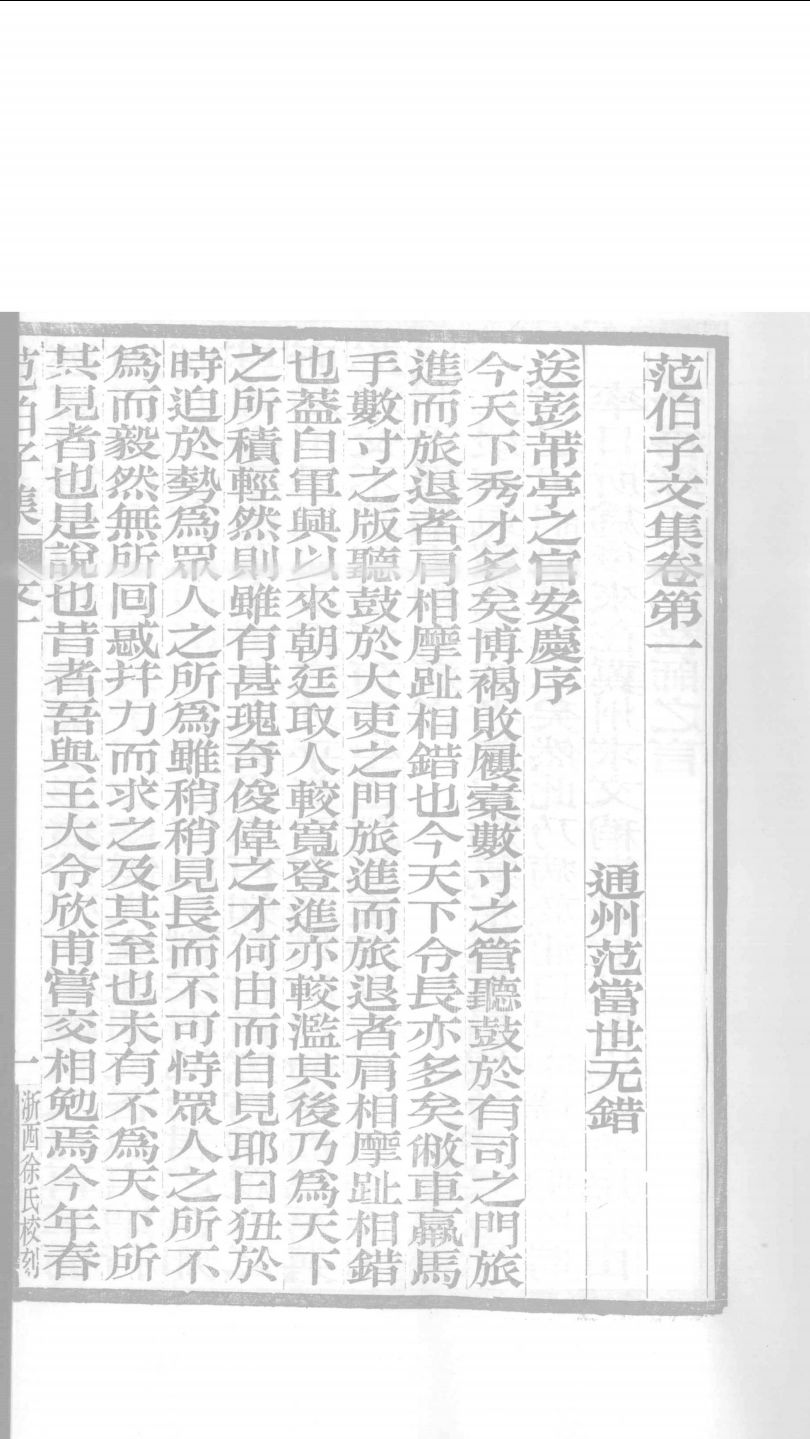 范伯子文集卷第一
通州范當世无錯
送彭芾亭之官安慶序
今天下秀才多矣博褐敗屨橐數寸之管聽鼓於有司之門旅
進而旅退者肩相摩趾相錯也今天下令長亦多矣敝車羸馬
手數寸之版聽鼓於大吏之門旅進而旅退者肩相摩趾相錯
也葢自軍興以來朝廷取人較寬登進亦較濫其後乃爲天下
之所積輕然則雖有甚瑰奇俊偉之才何由而自見耶曰狃於
時迫於勢爲眾人之所爲雖稍稍見長而不可恃眾人之所不
爲而毅然無所回惑幷力而求之及其至也未有不爲天下所
共見者也是說也昔者吾與王大令欣甫嘗交相勉焉今年春
范伯子集 文一 一 浙西徐氏校刻